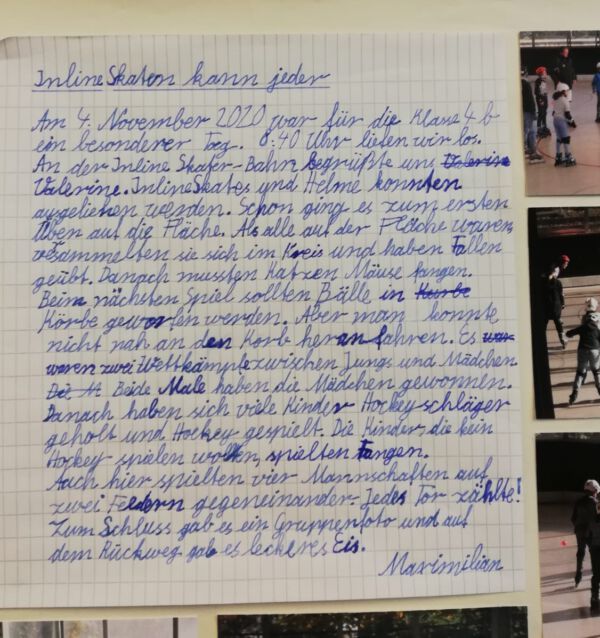 Inline Skaten kann jeder
Am 4. November 2020 war für die Klase 4 b
ein besonderer Tag. 8:40 Uhr liefen wir los.
An der Inline Skater-Bahn begrüßte uns Valerine
Valerine. Inline Skates und Helme konnten
ausgeliehen werden. Schon ging es zum ersten
Üben auf die Fläche. Als alle auf der Fläche waren,
versammelten sie sich im Kreis und haben Fallen
geübt. Danach mussten Katzen Mäuse fangen.
Beim nächsten Spiel sollten Bälle in Kurbe
Körbe geworfen werden. Aber man konnte
nicht nah an den Korb heranfahren. Es war
waren zwei Wettkämpfe zwischen Jungs und Mädchen
Die M Beide Male haben die Mädchen gewonnen.
Danach haben sich viele Kinder Hockeyschläger
geholt und Hockey gespielt. Die Kinder, die kein
Hockey spielen wollten, spielten Fangen.
Auch hier spielten vier Mannschaften auf
zwei Feldern gegeneinander. Jedes Tor zählte!
Zum Schluss gab es ein Gruppenfoto und auf
dem Rückweg gab es leckeres Eis.
Maximilian